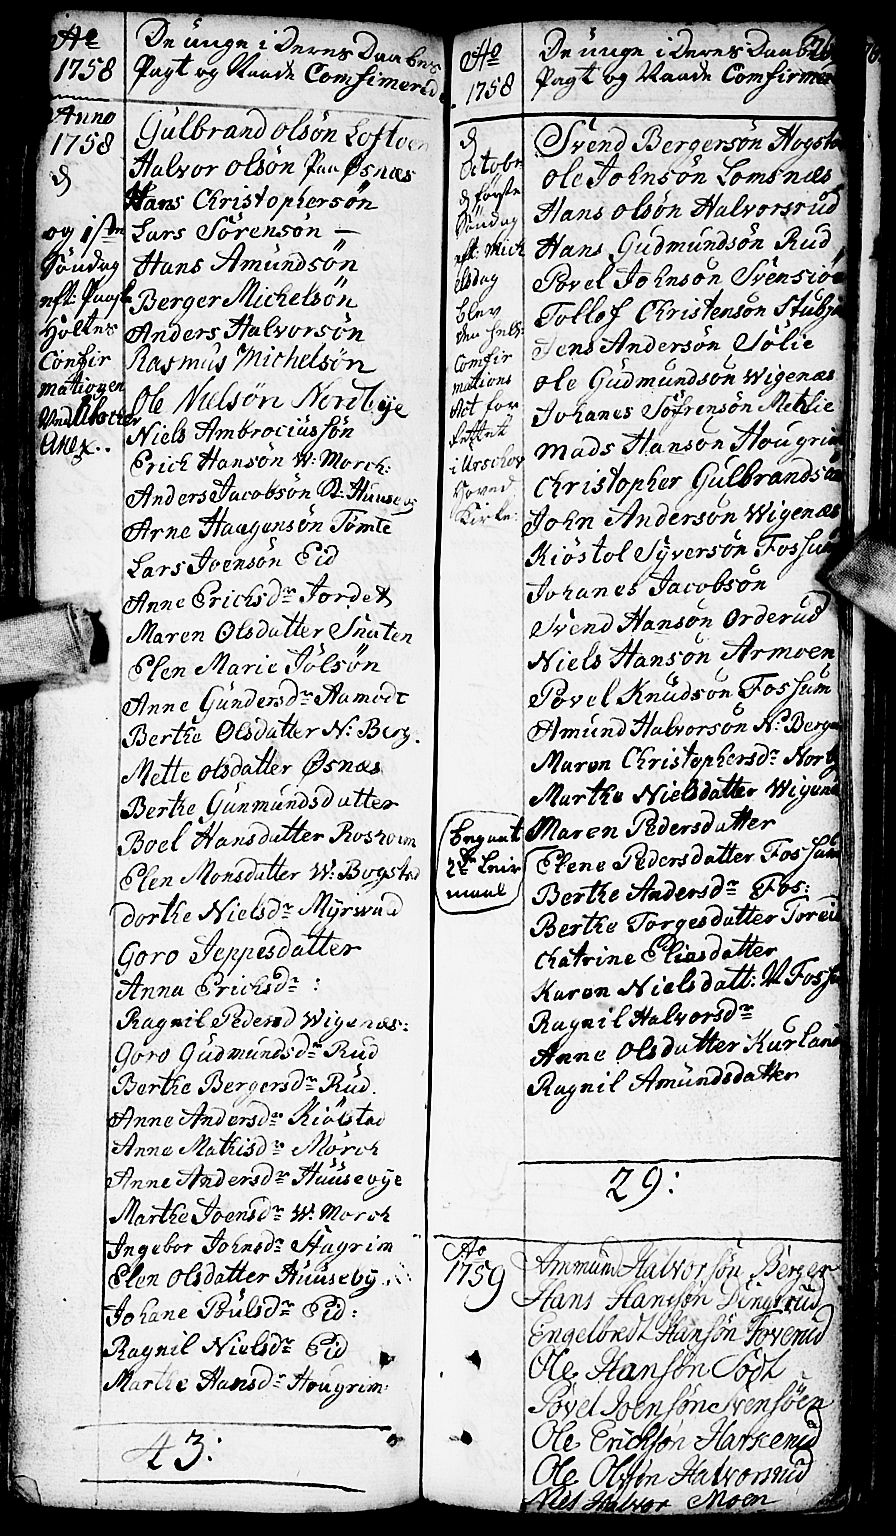 Ao
1758
De unge i Deres Daabes
Pagt og Naade Comfimerede
Anno
1758
d
og 1ste
Søndag
eft: Paaske
Høltes
Confir
mationen
Ved
Anex..
Gulbrand olsøn Loftven
Halvor olsøn Paa Øsnæs
Hans Christophersøn
Lars Sørensøn —
Hans Amundsøn
Berger Michelsøn
Anders Halvorsøn
Rasmus Michelsøn
Ole Nielsøn Nordbye
Niels Ambrociussøn
Erich Hansøn W: Morch:
Anders Jacobsøn Huusebye
Arne Haagensøn Tømte
Lars Joensøn Eid
Anne Erichsdr Jordet
Maren Olsdatter Snaten
Elen Marie Jolsøn
Anne Gundersdr Aamodt
Berthe Olsdatter N: Berg.
Mette olsdatter Øsnæs
Berthe Gunmundsdatter
Boel Hansdatter Rosholm
Elen Monsdatter W: Bogstad
dorthe Nielsdr Myrwald
Goro Jeppesdatter
Anna Erichsdr :
Ragnil Pedersd Wigenæs:
Goro Gudmundsdr Rud
Berthe Bergersdr Rud.
Anne Andersdr Kiølstad
Anne Mathisdr Mørch
Anne Andersdr Huusebye
Marthe Joensdr W: Morch
Ingebor Johnsdr Haugrim
Elen Olsdatter Huuseby
Johane Poulsdr Eid:
Ragnil Nielsdr Eid
Marthe Hansdr Hougrim:
43:
Ao
1758
De unge i Deres Daabes
Pagt og Naade Comfirmerede
d
Octobr
d første
Søndag
eft: Mich
elsdag
blev
den hell:
Comfir
mations
Act for
rettet
i Urschov
Hoved
Kirke:
Svend Bergersøn Hogsta
Ole Johnsøn Lomsnæs
Hans olsøn Halvorsrud
Hans Gudmundsøn Rud
Povel Johnsøn Svensiøe
Tollof Christensøn
Jens Andersøn Sølie
Ole Gudmundsøn Wigenæs
Johanes Søfrensøn Mehlie
Mads Hansøn Hougrim
Christopher Gulbrandsøn
John Andersøn Wigenæs
Kiøstol Syversøn Fossum
Johanes Jacobsøn
Svend Hansøn Orderud
Niels Hansøn Armoen
Povel Knudsøn Fossum
Amund Halvorsøn N: Berger
Maren Christophersdr Norby
Marthe Nielsdatter Wigenæs
Maren Pedersdatter
Elene Pedersdatter Fossum
Berthe Andersdr Fos:
Berthe Torgesdatter
Chatrine Eliasdatter
Karen Nielsdatt: W Fossum
Ragnil Halvorsdr
Anne Olsdatter Kurland
Ragnil Amundsdatter
29:
Ao
1759
Ammund Halvorsøn Berger
Hans Hansøn Dingrud
Engelbredt Hansøn Toverud
Ole Hansøn Todt
Povel Joensøn Svensøen
Ole Erichsøn Harkerud
Ole Olsøn Halvorsrud
Niels Halvor Moen